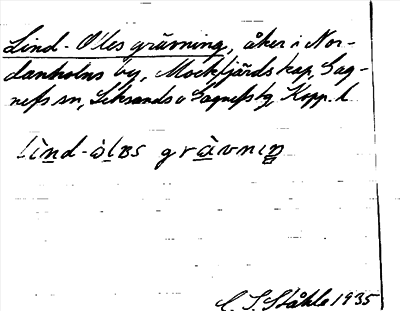 Lind-Oles grävning, åker i Nor-
danholns by, Mockfjärds kap, Gag-
nefs sn, Leksands o Gagnefs tg Kopp. l.
lìnd-ὼləs grävnıŋ
C. I. Ståhle 1935